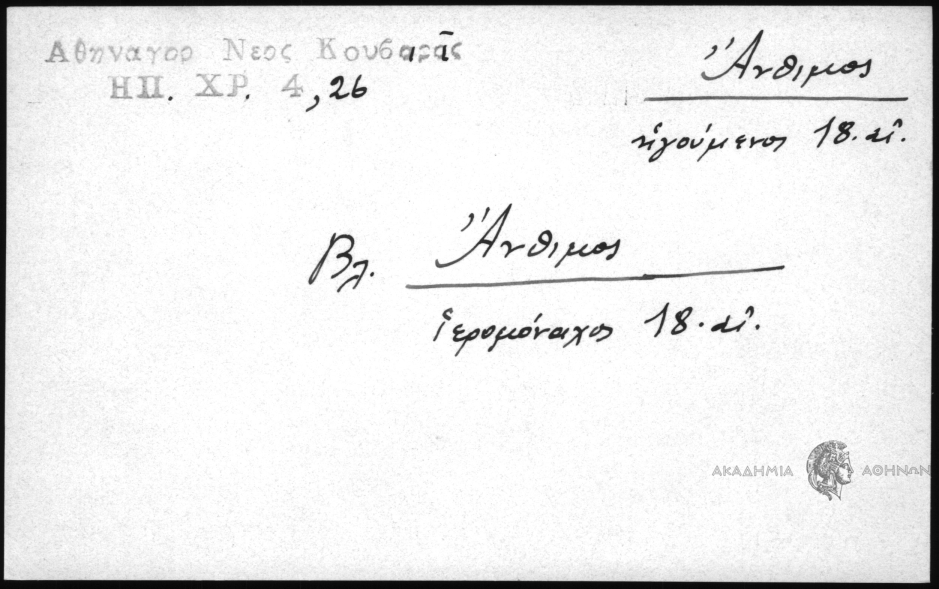 Ἀθηναγορ Νεος Κουβαρᾶς
ΗΠ. ΧΡ. 4, 26
Ἄνθιμος
ἡγούμενος 18. αἰ.
Βλ. Ἄνθιμος
ἱερομόναχος 18. αἰ.
ΑΚΑΔΗΜΙΑ ΑΘΗΝΩΝ